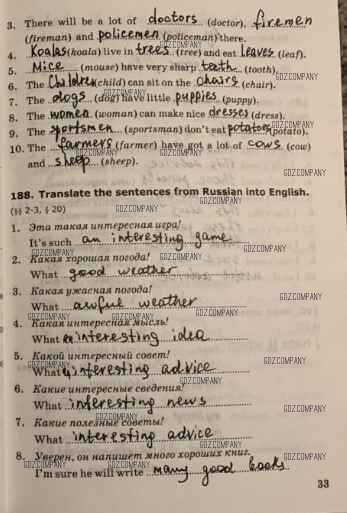 3. There will be a lot of doctors (doctor), firemen
(fireman) and policemen (policeman) there.
GDZCOMPANY
4. Koalas (koala) live in trees (tree) and eat leaves (leaf).
GDZCOMPANY
5. Mice (mouse) have very sharp teeth (tooth).
GDZCOMPANY
6. The Children (child) can sit on the chairs (chair).
GDZCOMPANY
7. The dogs (dog) have little puppies (puppy).
GDZCOMPANY
8. The women (woman) can make nice dresses (dress).
GDZCOMPANY
9. The sportsmen (sportsman) don't eat potatoes (potato).
GDZCOMPANY
10. The farmers (farmer) have got a lot of cows (cow)
GDZCOMPANY GDZCOMPANY
and sheep (sheep).
GDZCOMPANY
188. Translate the sentences from Russian into English.
(§§ 2-3, § 20)
GDZCOMPANY GDZCOMPANY
1. Эта такая интересная игра!
GDZCOMPANY
It's such an interesting game.
GDZCOMPANY
2. Какая хорошая погода!
GDZCOMPANY
What good weather
GDZCOMPANY
3. Какая ужасная погода!
GDZCOMPANY
What awful weather
GDZCOMPANY
4. Какая интересная мысль!
GDZCOMPANY
What interesting idea
GDZCOMPANY
5. Какой интересный совет!
GDZCOMPANY
What interesting advice
GDZCOMPANY
6. Какие интересные сведения!
GDZCOMPANY
What interesting news
GDZCOMPANY
7. Какие полезные советы!
GDZCOMPANY
What interesting advice
GDZCOMPANY
8. Уверен, он напишет много хороших книг.
GDZCOMPANY GDZCOMPANY GDZCOMPANY
I'm sure he will write many good books.
33